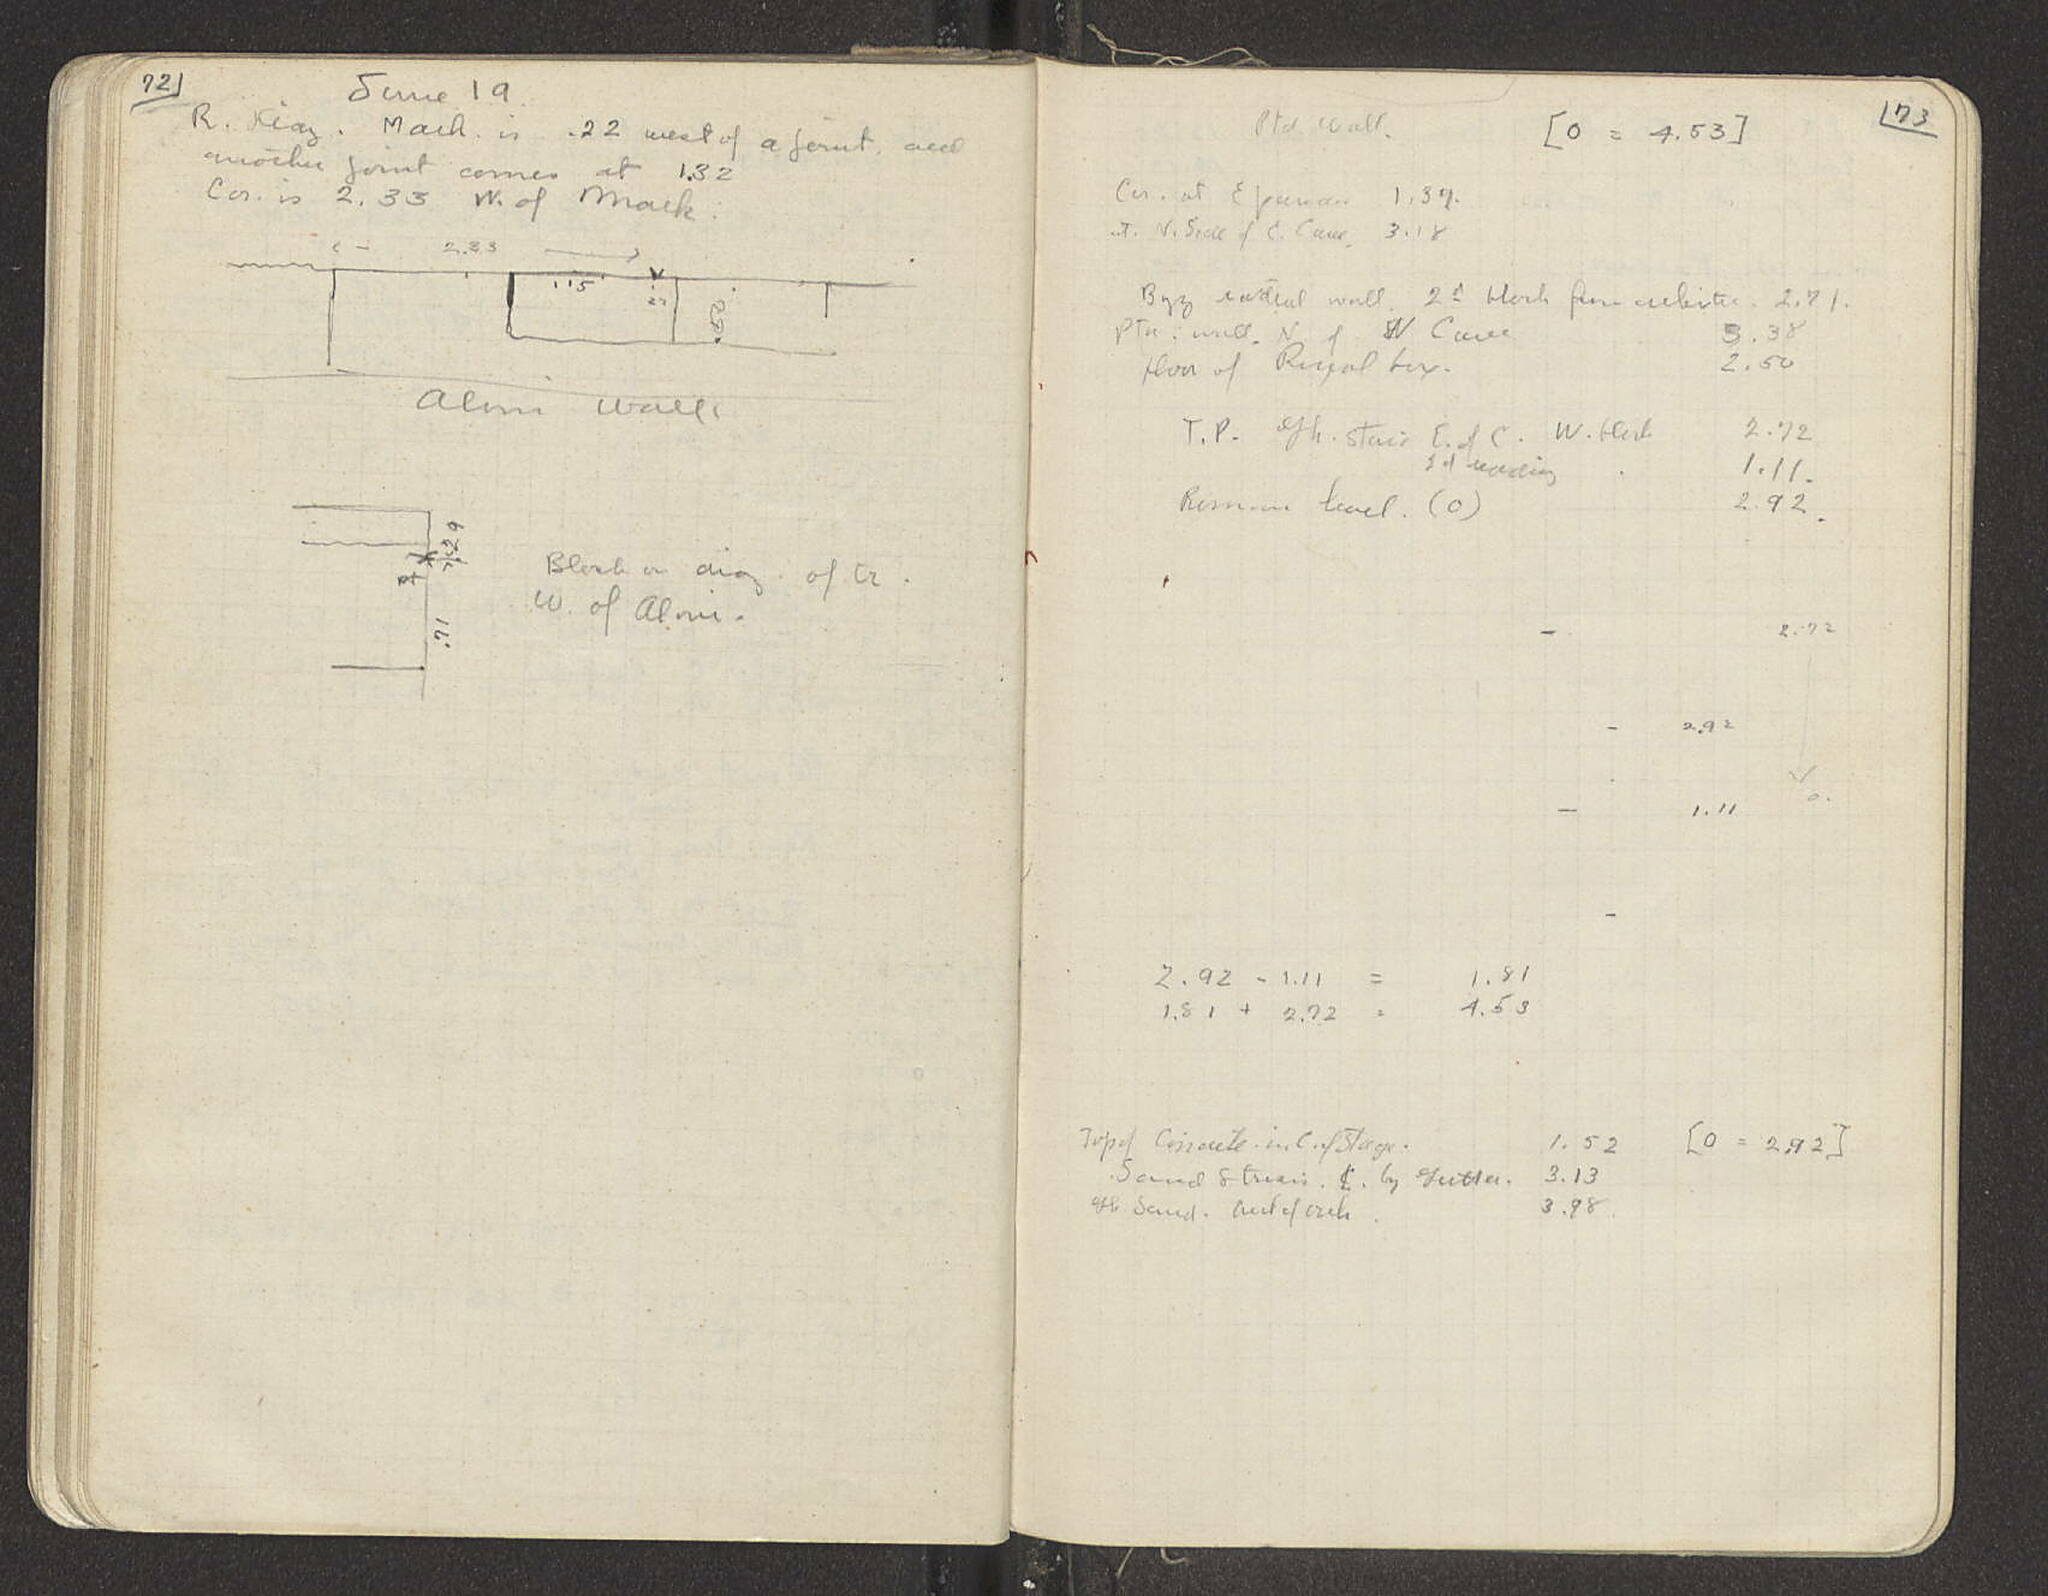 72
June 19
R. diag. Mark is .22 west of a joint, and
another joint comes at 1.32
Cor. is 2.33 W. of Mark.
2.33
1.15
.22
Aloni Wall
.29
.71
Block on diag. of tr.
W. of Aloni.
73
Ptd. Wall.
[0 = 4.53]
Cor. at E 1.37.
at N. Side of E. Cave. 3.18
Byz radial wall. 2d block from 2.71.
Ptd. wall. N. of W Cave 3.38
floor of Royal box. 2.50
T.P. stair E. of C. W. block 2.72
2d reading 1.11.
Roman level. (0) 2.92.
- 2.72
- 2.92
- 1.11
0.
-
2.92 - 1.11 = 1.81
1.81 + 2.72 = 4.53
Top of Concrete in C. of Stage. 1.52 [0 = 2.92]
Sand by Gutter. 3.13
Sand. 3.98